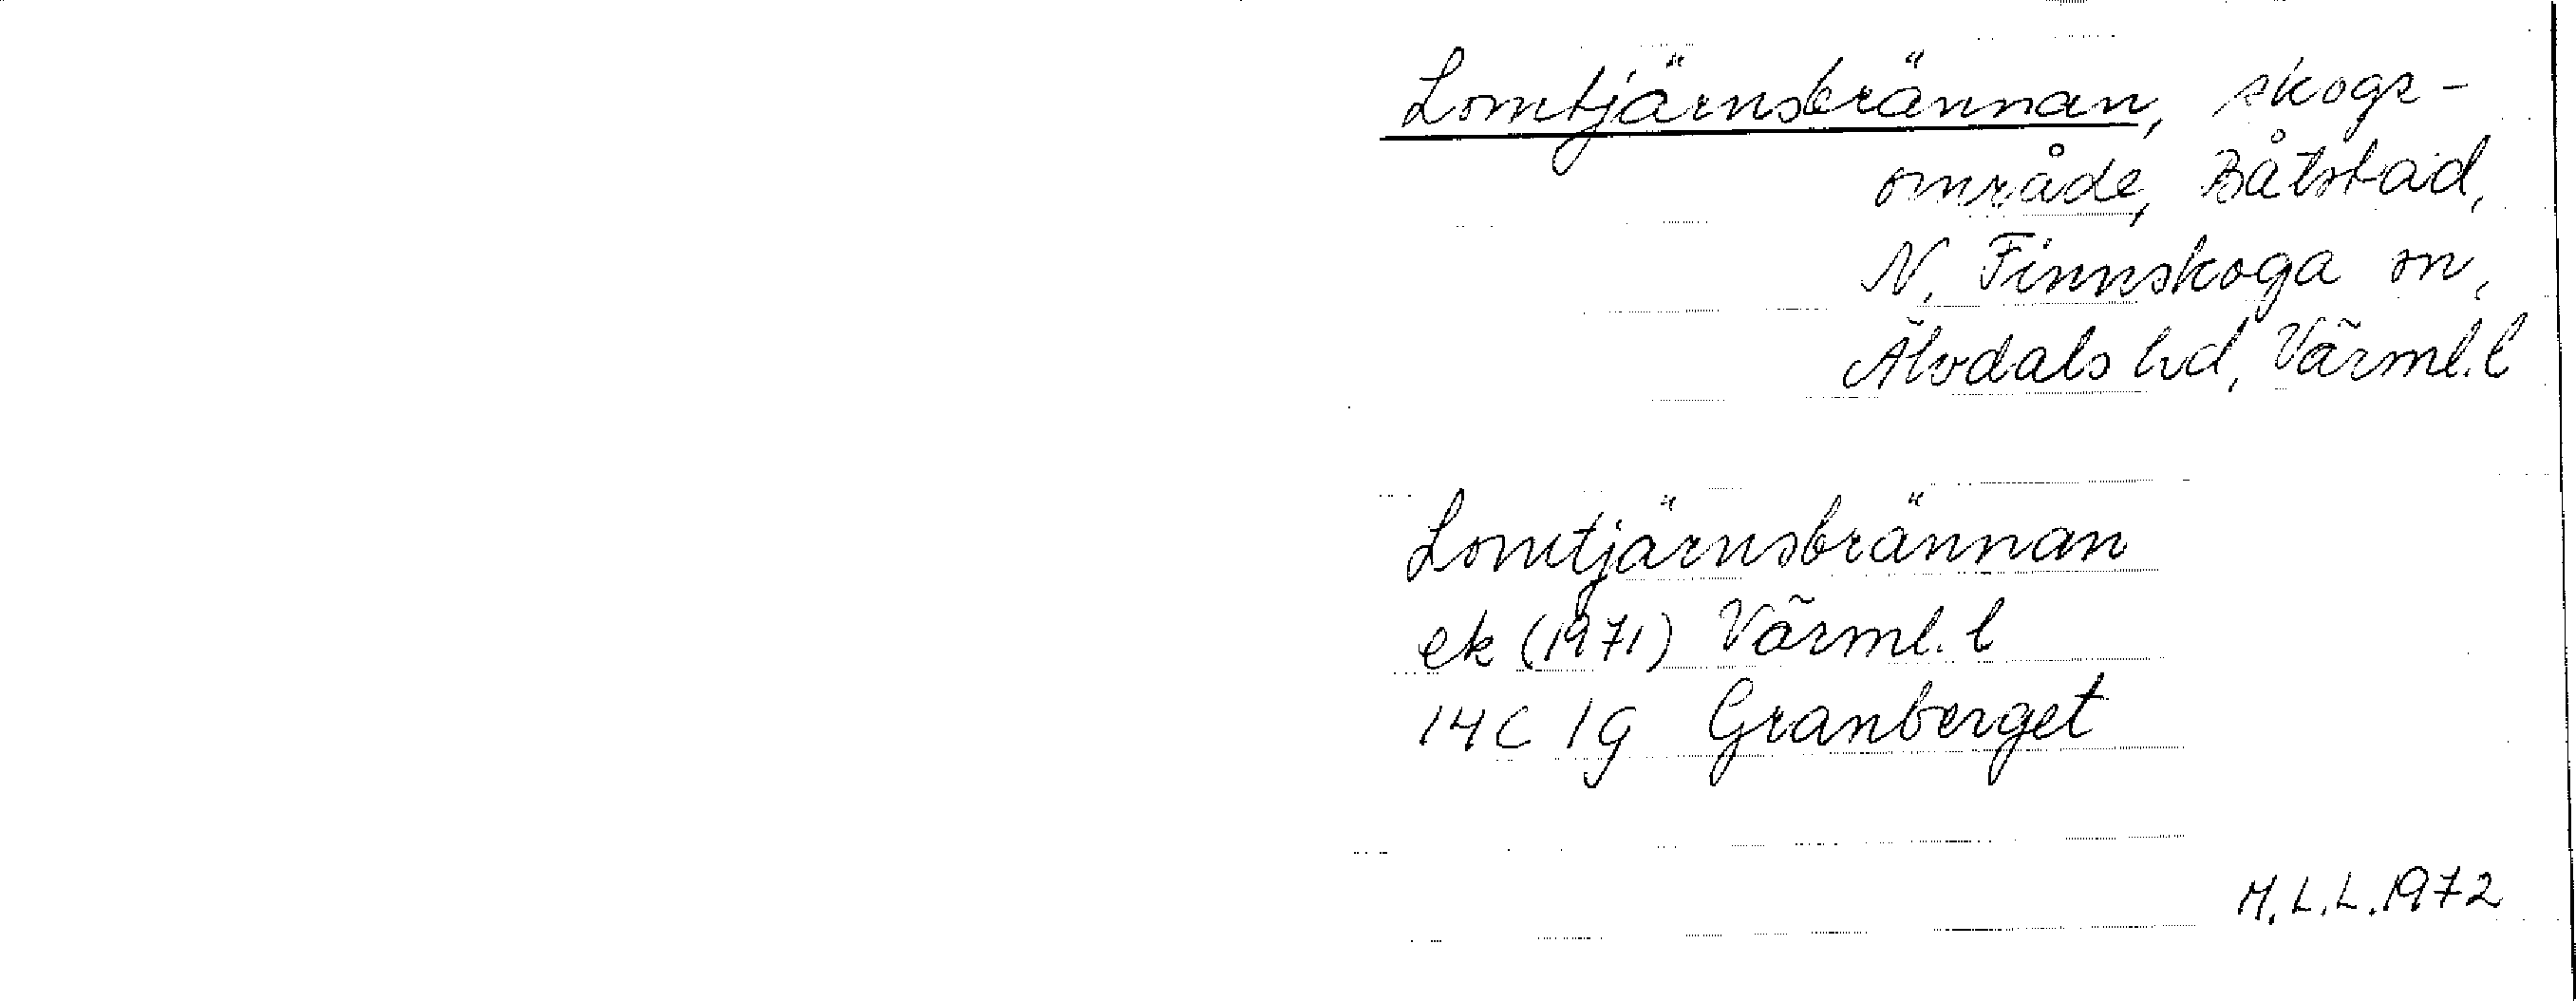 Lomtjärnsbrännan, skogs-
område, Båtstad,
N. Finnskoga sn,
Älvdals hd, Värml. l
Lomtjärnsbrännan
ek (1971) Värml. l
14C 1g Granberget
M.L.L. 1972